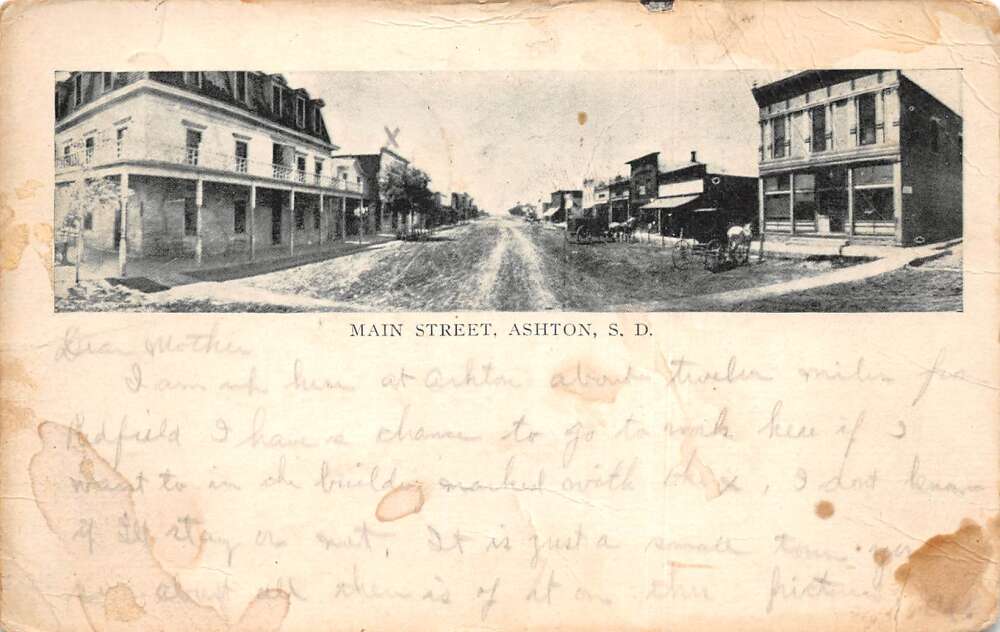 X
MAIN STREET, ASHTON, S. D.
Dear Mother
I am up here at Ashton about twelve miles from
Redfield I have a chance to go to work here if I
want to in the building marked with the x, I dont know
if Ill stay or not, It is just a small town you
see about all there is of it on this picture